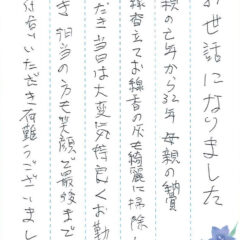 お世話になりました
親の亡年から32年 母親の納骨
線香立てお線香の灰も綺麗に掃除し
だき当日は大変気持良くお勤
き 担当の方も笑顔で最後まで
付合いいただき有難うございまし